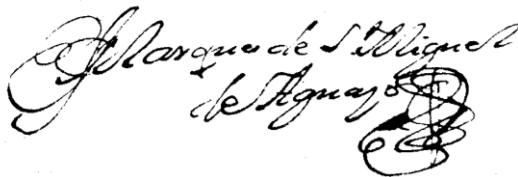 El Marques de S. Miguel
de Aguayo